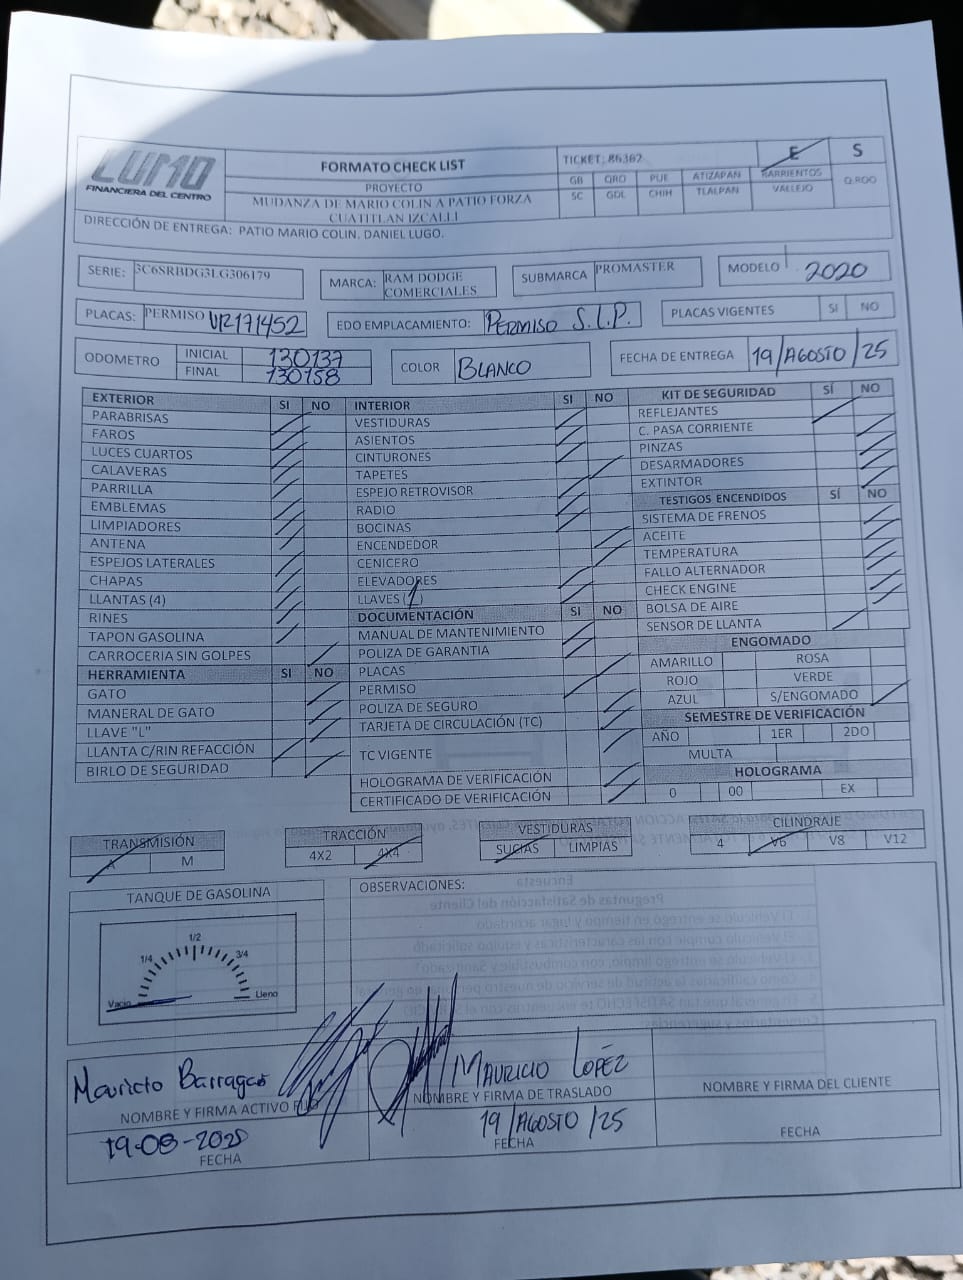 LUMO
FINANCIERA DEL CENTRO
FORMATO CHECK LIST
PROYECTO
MUDANZA DE MARIO COLIN A PATIO FORZA
CUATITLAN IZCALLI
TICKET: 86362
E S
GB QRO PUE ATIZAPAN BARRIENTOS Q.ROO
SC GDL CHIH TLALPAN VALLEJO
DIRECCIÓN DE ENTREGA: PATIO MARIO COLIN. DANIEL LUGO.
SERIE: 3C6SRBDG3LG306179
MARCA: RAM DODGE COMERCIALES
SUBMARCA PROMASTER
MODELO 2020
PLACAS: PERMISO U12171452
EDO EMPLACAMIENTO: PERMISO S.L.P.
PLACAS VIGENTES SI NO
ODOMETRO INICIAL 130137
FINAL 130158
COLOR BLANCO
FECHA DE ENTREGA 19/AGOSTO/25
EXTERIOR SI NO
PARABRISAS
FAROS
LUCES CUARTOS
CALAVERAS
PARRILLA
EMBLEMAS
LIMPIADORES
ANTENA
ESPEJOS LATERALES
CHAPAS
LLANTAS (4)
RINES
TAPON GASOLINA
CARROCERIA SIN GOLPES
HERRAMIENTA SI NO
GATO
MANERAL DE GATO
LLAVE "L"
LLANTA C/RIN REFACCIÓN
BIRLO DE SEGURIDAD
INTERIOR SI NO
VESTIDURAS
ASIENTOS
CINTURONES
TAPETES
ESPEJO RETROVISOR
RADIO
BOCINAS
ENCENDEDOR
CENICERO
ELEVADORES
LLAVES (1)
DOCUMENTACIÓN SI NO
MANUAL DE MANTENIMIENTO
POLIZA DE GARANTIA
PLACAS
PERMISO
POLIZA DE SEGURO
TARJETA DE CIRCULACIÓN (TC)
TC VIGENTE
HOLOGRAMA DE VERIFICACIÓN
CERTIFICADO DE VERIFICACIÓN
KIT DE SEGURIDAD SÍ NO
REFLEJANTES
C. PASA CORRIENTE
PINZAS
DESARMADORES
EXTINTOR
TESTIGOS ENCENDIDOS SÍ NO
SISTEMA DE FRENOS
ACEITE
TEMPERATURA
FALLO ALTERNADOR
CHECK ENGINE
BOLSA DE AIRE
SENSOR DE LLANTA
ENGOMADO
AMARILLO ROSA
ROJO VERDE
AZUL S/ENGOMADO
SEMESTRE DE VERIFICACIÓN
AÑO 1ER 2DO
MULTA
HOLOGRAMA
0 00 EX
TRANSMISIÓN
A M
TRACCIÓN
4X2 4X4
VESTIDURAS
SUCIAS LIMPIAS
CILINDRAJE
4 V6 V8 V12
TANQUE DE GASOLINA
Vacio 1/4 1/2 3/4 Lleno
OBSERVACIONES:
Mauricio Barragas
NOMBRE Y FIRMA ACTIVO FIJO
19-08-2025
FECHA
MAURICIO LOPÉZ
NOMBRE Y FIRMA DE TRASLADO
19/AGOSTO/25
FECHA
NOMBRE Y FIRMA DEL CLIENTE
FECHA